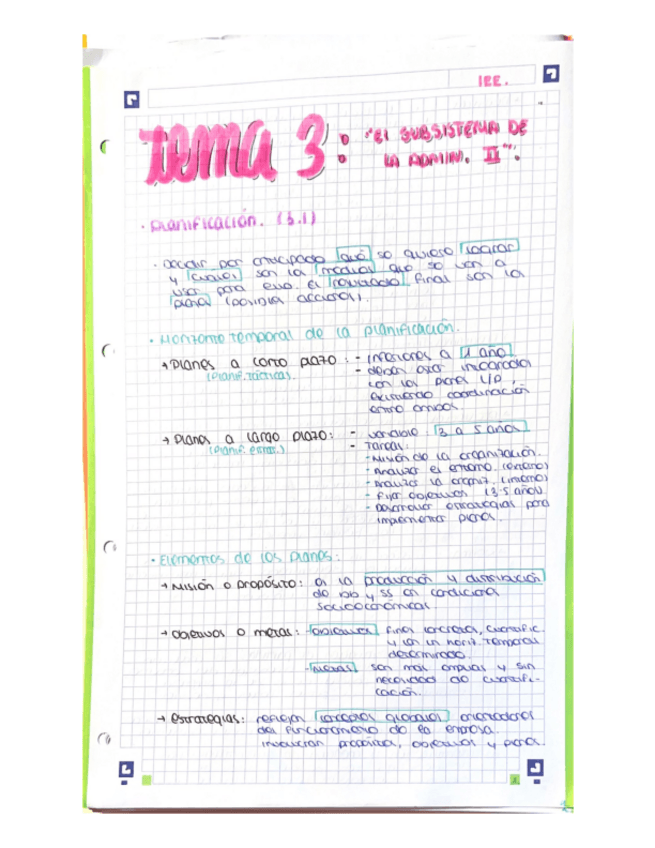 IEE.
Tema 3: "El SUBSISTEMA DE
LA ADMIN. II".
· Planificación. (3.1)
· Decidir por anticipado qué se quiere lograr
y cuales son la medias que se van a
usar para ello. El resultado final son los
planes (posibles acciones).
· Horizonte temporal de la planificación.
→ Planes a corto plazo: - inferiores a 1 año.
(Planif. táctica) - deben estar
con los planes L/P,
coordinación
entre ambos.
→ Planes a largo plazo: - variable: 3 a 5 años.
(Planif. estrat.) - Tareas:
- Misión de la organización.
- Analizar el entorno. (externo)
- Analizar la organiz. (interno)
- Fijar objetivos (3-5 años).
- Desarrollar estrategias para
implementar planes.
· Elementos de los planes:
→ Misión o propósito: es la producción y distribución
de bb y ss en condiciones
socioeconómicas.
→ Objetivos o metas: - objetivos fines concretos, cuantific.
y con un horiz. temporal
determinado.
- metas son más amplias y sin
necesidad de cuantifi-
cación.
→ Estrategias: reflejan conceptos globales orientadores
del funcionamiento de la empresa.
Involucran propósitos, objetivos y planes.